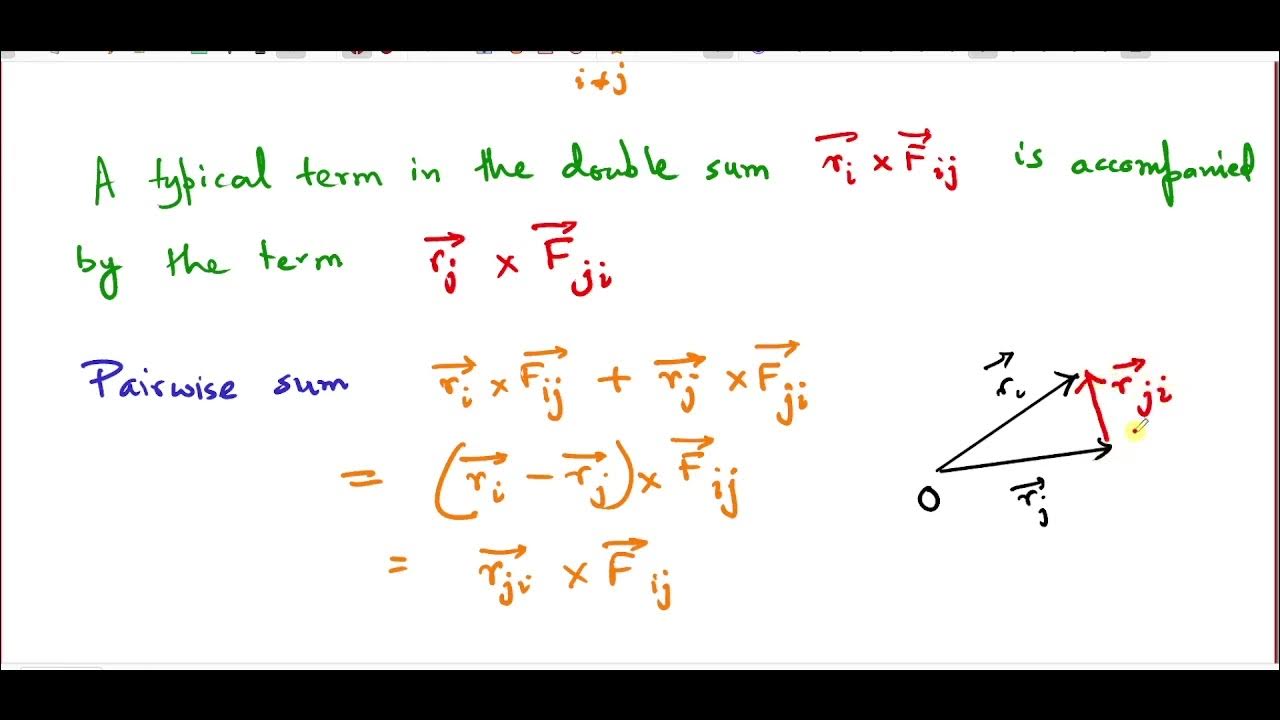 i≠j
A typical term in the double sum $\vec{r_i} \times \vec{F}_{ij}$ is accompanied
by the term $\vec{r_j} \times \vec{F}_{ji}$
Pairwise sum $\vec{r_i} \times \vec{F}_{ij} + \vec{r_j} \times \vec{F}_{ji}$
$= (\vec{r_i} - \vec{r_j}) \times \vec{F}_{ij}$
$= \vec{r}_{ji} \times \vec{F}_{ij}$
$\vec{r_i}$
$\vec{r}_{ji}$
O
$\vec{r_j}$